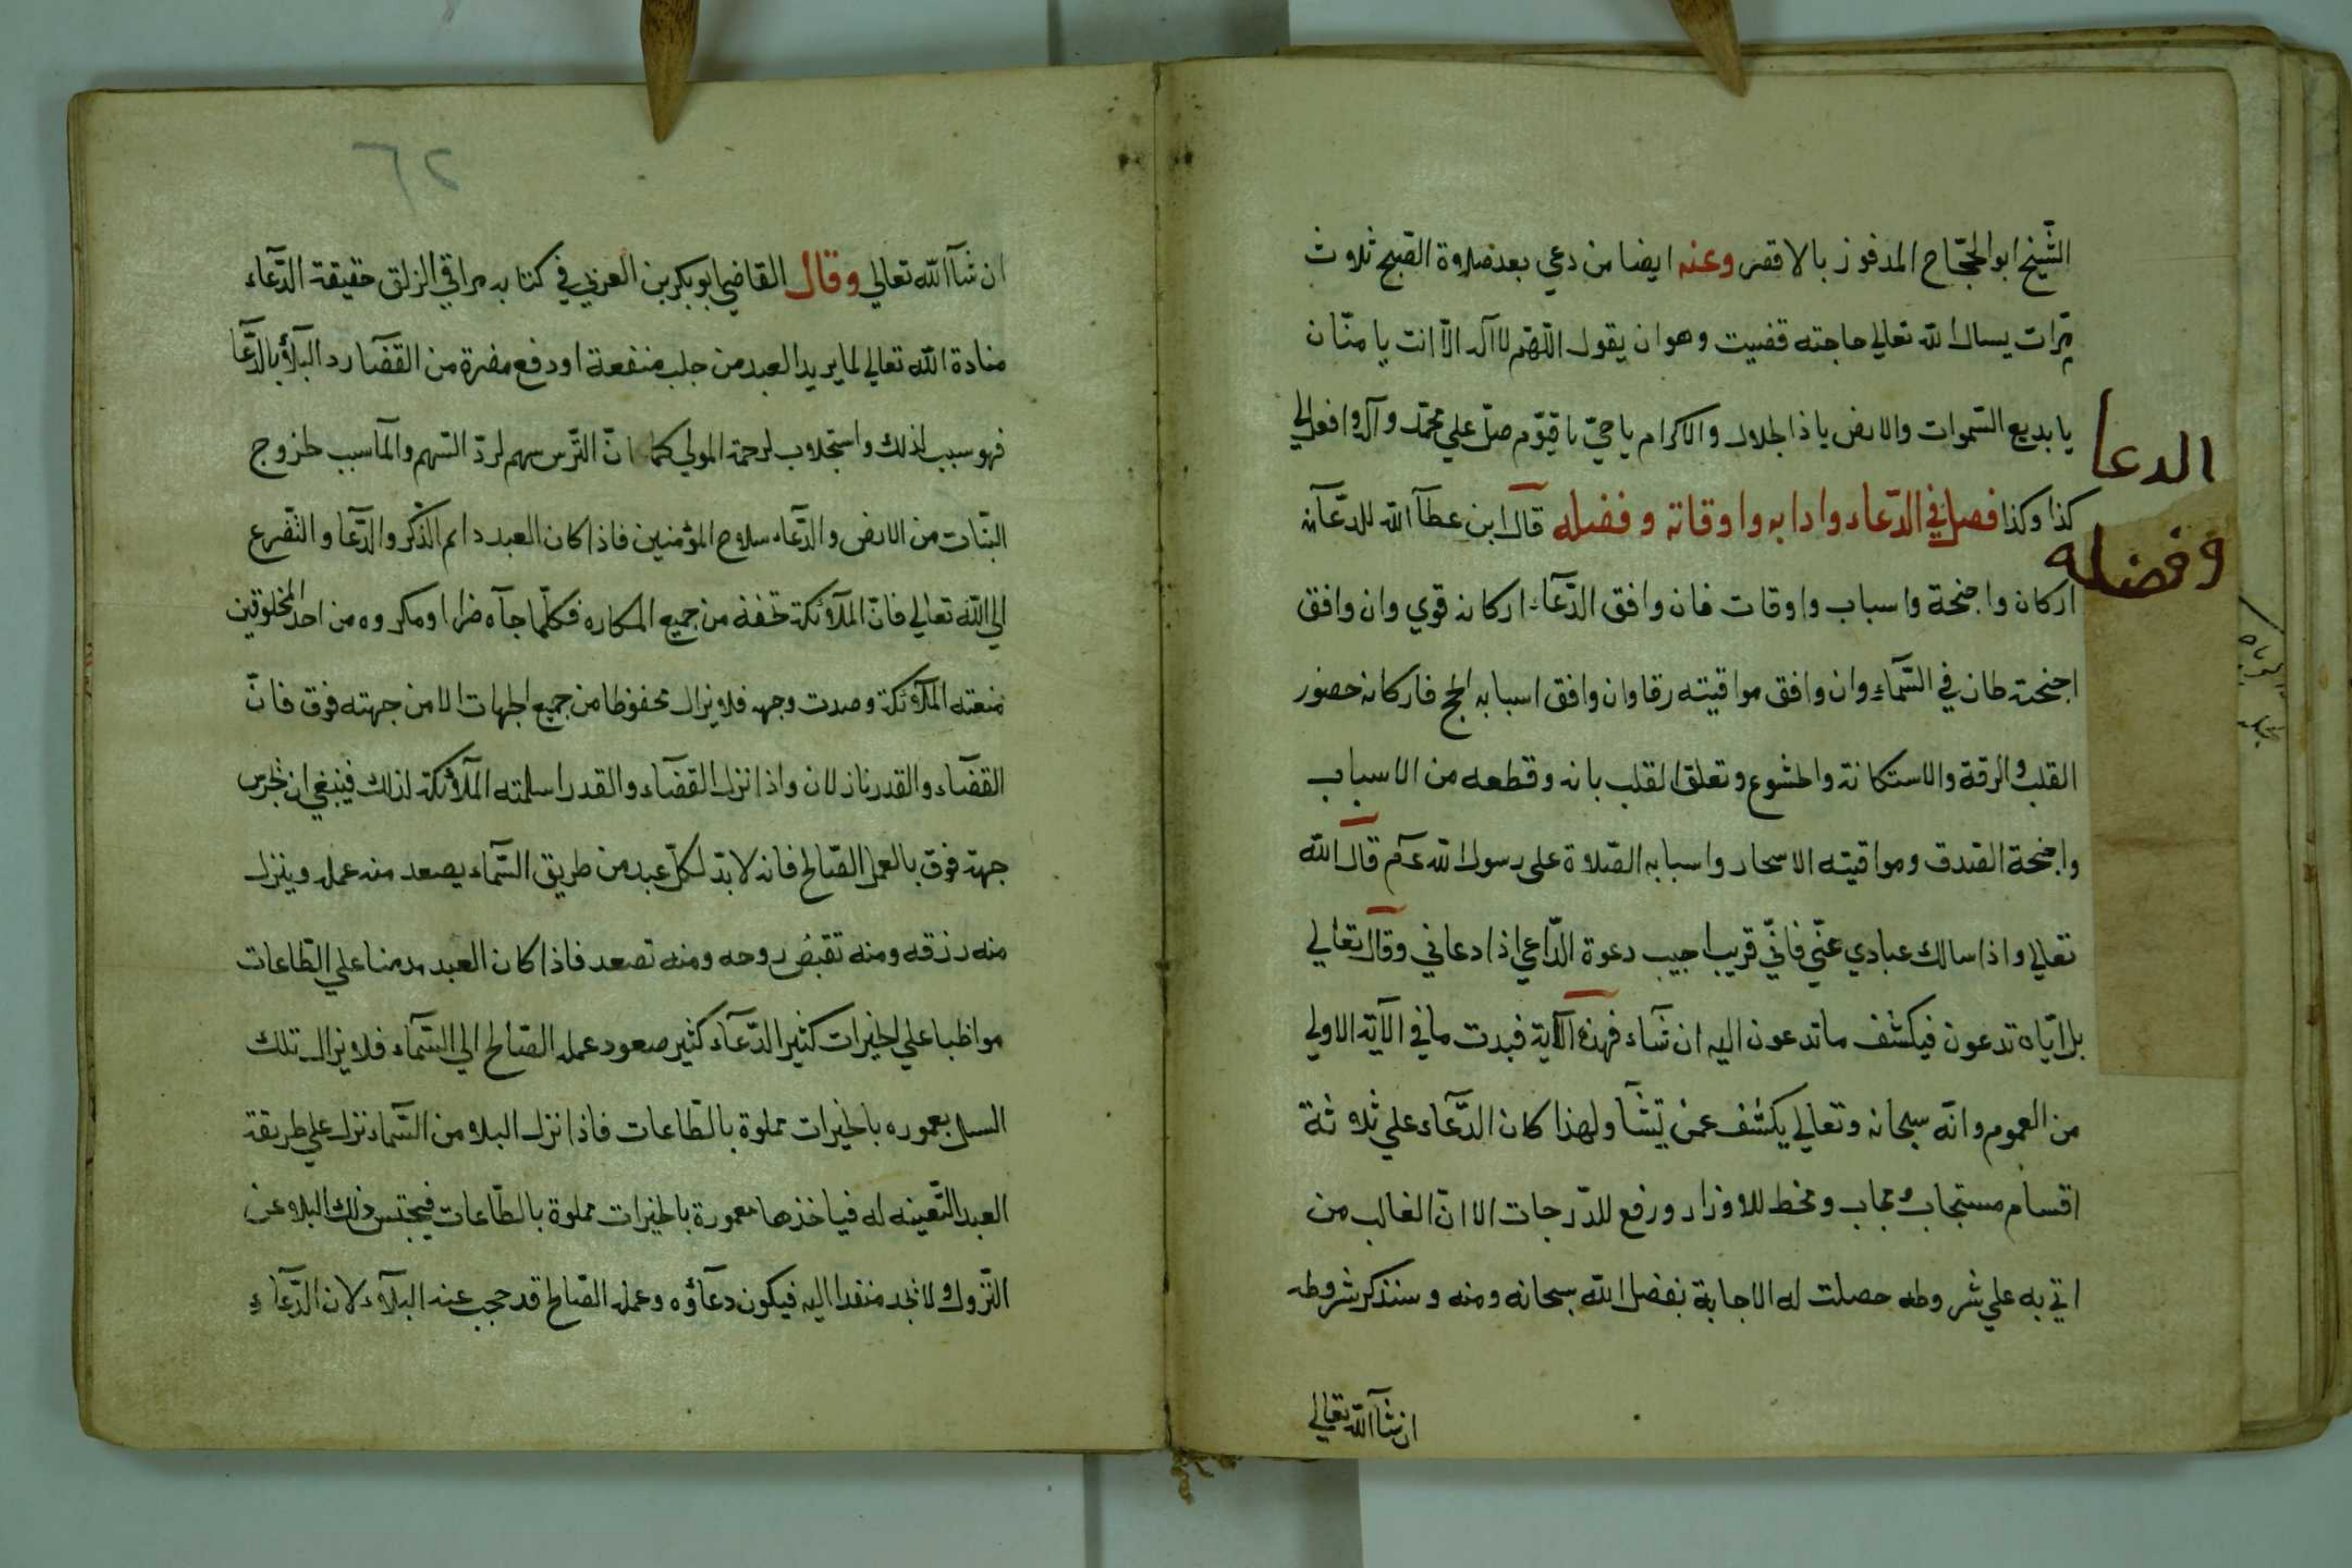 الشّيخ ابو الحجّاج المدفون بالاقصر وعنه ايضا من دعي بعد صلاوة الصّبح ثلاوث
مرّات يسال الله تعالي حاجته قضيت وهو ان يقول اللّهمّ لا آله الاّ انت يا منّان
يا بديع السّموات والارض ياذا الجلال والاكرام يا حيّ يا قيّوم صلّ علي محمّد وآله وافعل لي
كذا وكذا فصل في الدّعاء وادابه واوقاته وفضله قال ابن عطآ الله للدّعآء
الدعا
وفضله
اركان واجنحة واسباب واوقات فان وافق الدّعآء اركانه قوي وان وافق
اجنحته طار في السّمآء وان وافق مواقيته رقا وان وافق اسبابه انجح فاركانه حضور
القلب والرقة والاستكانة والخشوع وتعلق القلب بانه وقطعه من الاسباب
واجنحة الصّدق ومواقيته الاسحار واسبابه الصّلاة علي رسول الله عم قال الله
تعالي واذا سالك عبادي عنّي فانّي قريب اجيب دعوة الدّاعي اذا دعاني وقال تعالي
بل ايّاه تدعون فيكشف ما تدعون اليه ان شآء فهذه الآية قيدت ما في الآية الاولي
من العموم وانّه سبحانه وتعالي يكشف عمن يّشآ ولهذا كان الدّعآء علي ثلاوثة
اقسام مستجاب مجاب ومحط للاوزار ورفع للدّرجات الا انّ الغالب من
اتي به علي شروطه حصلت له الاجابة بفضل الله سبحانه ومنه وسنذكر شروطه
ان شآ الله تعالي
٦٢
ان شآ الله تعالي وقال القاضي ابو بكر بن العربي في كتابه مراقي الزلق حقيقة الدّعآء
منادة الله تعالي لما يريد العبد من جلب منفعة او دفع مضرة من القضآ رد البلآ بالدّعآ
فهو سبب لذلك واستجلاوب لرحمة المولي كما انّ التّرس سهم لردّ السّهم والمآ سبب لخروج
النّبات من الارض والدّعآء سلاوح المؤمنين فاذا كان العبد دايم الذّكر والدّعآ والتّضرع
الي الله تعالي فانّ الملآئكة تحفه من جميع المكاره فكلّما جآه ضرا او مكروه من احد المخلوقين
منعته الملآئكة وصدت وجهه فلاو يزال محفوظا من جميع الجهات الا من جهته فوق فانّ
القضآء والقدر نازلان واذا نزل القضآء والقدر اسلمته الملآئكة لذلك فينبغي ان تحرس
جهة فوق بالعمل الصّالح فانه لا بدّ لكلّ عبد من طريق السّمآء يصعد منه عمله وينزل
منه رزقه ومنه تقبض روحه ومنه تصعد فاذا كان العبد مدمنا علي الطّاعات
مواظبا علي الخيرات كثير الدّعآء كثير صعود عمله الصّالح الي السّمآء فلاو يزال تلك
السبل بعموره بالخيرات مملوة بالطّاعات فاذا نزل البلاو من السّمآء نزل علي طريقة
العبد التّعينه له فياخذها معمورة بالخيرات مملوة بالطّاعات فيحتبس ذلك البلاو عن
النّزول ولا يجد منفدا اليه فيكون دعآؤه وعمله الصّالح قد حجب عنه البلآء لان الدّعآء